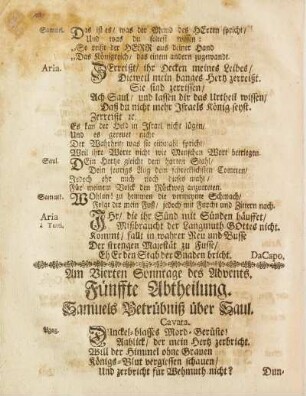 Samuel. Das ist es/ was der Mund des HErrn spricht/
Und was du solst wissen:
„So reißt der HERR aus deiner Hand
„Das Königreich/ das einem andern zugewandt.
Aria. Zerreißt/ ihr Decken meines Leibes/
Dieweil mein banges Hertz zerreißt.
Sie sind zerrissen/
Ach Saul/ und lassen dir das Urtheil wissen/
Daß du nicht mehr Israels König seyst.
Zerreißt ꝛc.
Es kan der Held in Israel nicht lügen/
Und es gereuet nicht
Der Wahrheit/ was sie einmahl spricht/
Weil ihre Worte nicht wie Menschen Wort betriegen.
Saul. Dein Hertze gleicht dem harten Stahl/
Dein zornigs Aug dem schrecklichsten Cometen/
Jedoch ehr mich noch dieses mahl/
Für meinem Volck den Rückweg anzutreten.
Samuel. Wohlan! zu hemmen die vermeynte Schmach/
Folgt dir mein Fuß/ jedoch mit Furcht und Zittern nach.
Aria Ihr/ die ihr Sünd mit Sünden häuffet/
à Tutti. Mißbraucht der Langmuth GOttes nicht.
Kommt/ fallt in wahrer Reu und Busse
Der strengen Majestät zu Fusse/
Eh Er den Stab der Gnaden bricht. DaCapo.
Am Vierten Sonntage des Advents.
Fünffte Abtheilung.
Samuels Betrübniß über Saul.
Cavata.
Agag. Dunckel-blasses Mord-Gerüste/
Anblick/ der mein Hertz zerbricht.
Will der Himmel ohne Grauen
Königs-Blut vergiessen schauen/
Und zerbricht für Wehmuth nicht?
Dun-